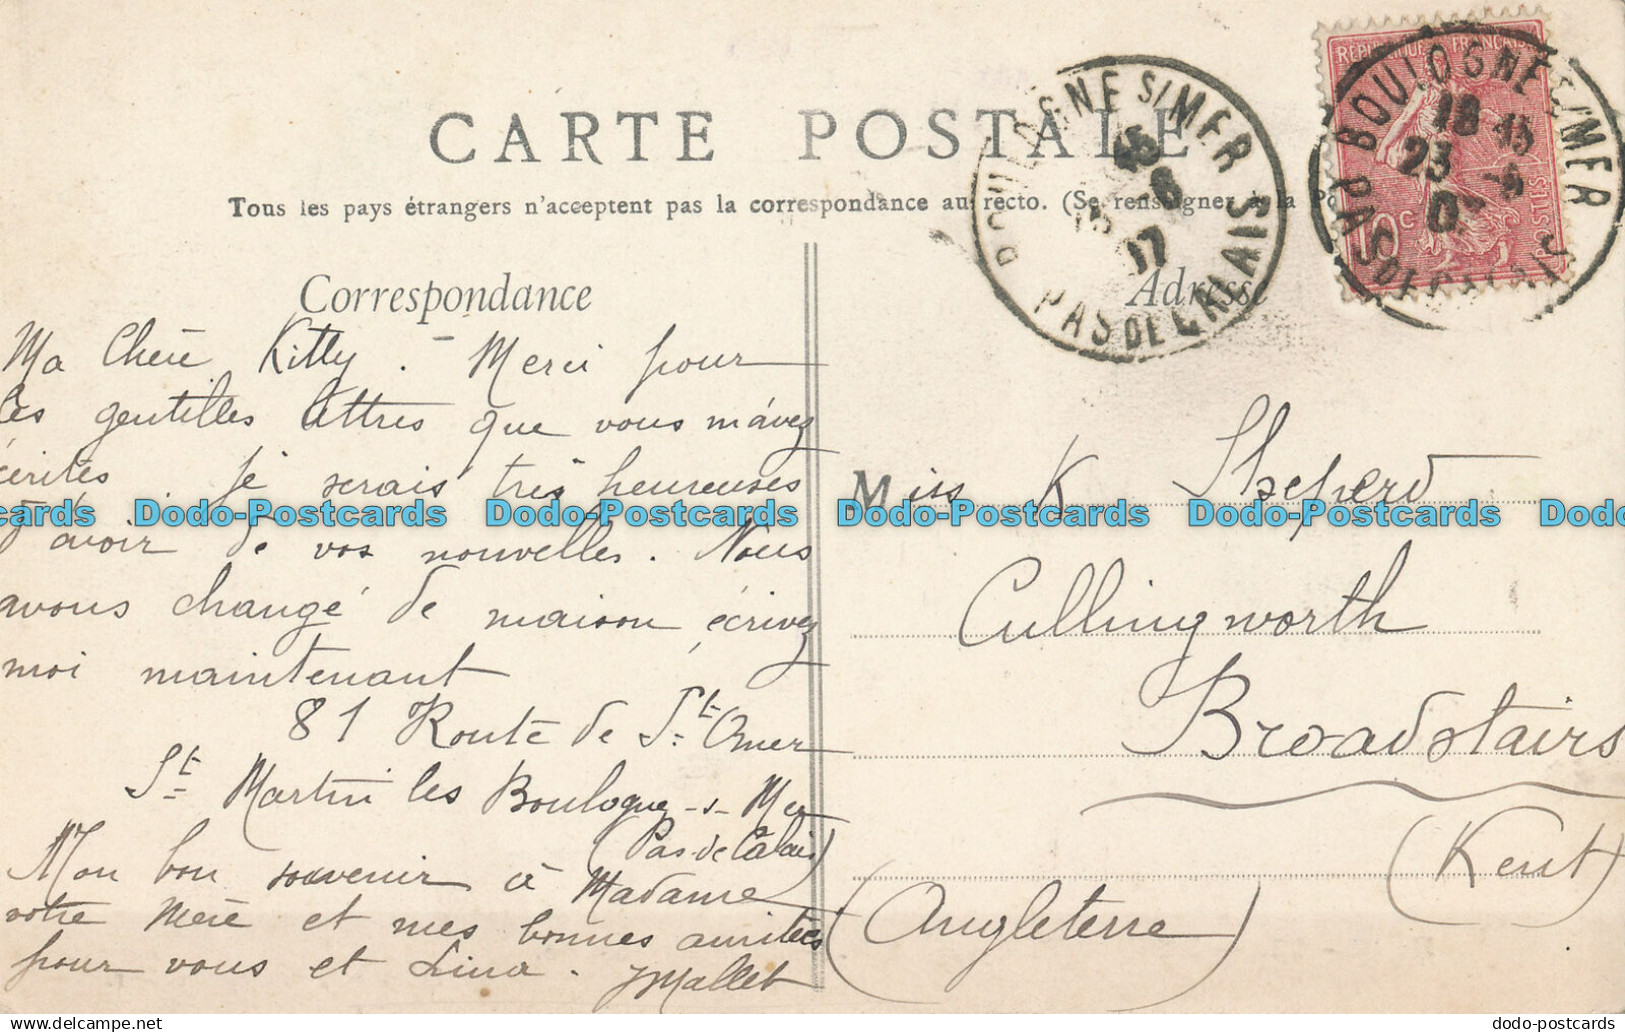 CARTE POSTALE
Tous les pays étrangers n'acceptent pas la correspondance au recto. (Se renseigner à la
Correspondance
Adresse
Ma Chère Kitty. - Merci pour
les gentilles lettres que vous m'avez
écrites. Je serais très heureuses
d'avoir de vos nouvelles. Nous
avons changé de maison, écrivez
moi maintenant
81 Route de St Omer
St Martin les Boulogne-s-Mer
(Pas-de-Calais)
Mon bon souvenir à Madame
votre mère et mes bonnes amitiées
pour vous et Lina. JMallet
Miss K Sheperd
Cullingworth
Broadstairs
(Kent)
(Angleterre)
BOULOGNE S/MER
17
PAS DE CALAIS
REPUBLIQUE FRANÇAISE
POSTES
10c
BOULOGNE S/MER
18 45
23 -6
PAS DE CALAIS
Dodo-Postcards Dodo-Postcards Dodo-Postcards Dodo-Postcards
dodo-postcards